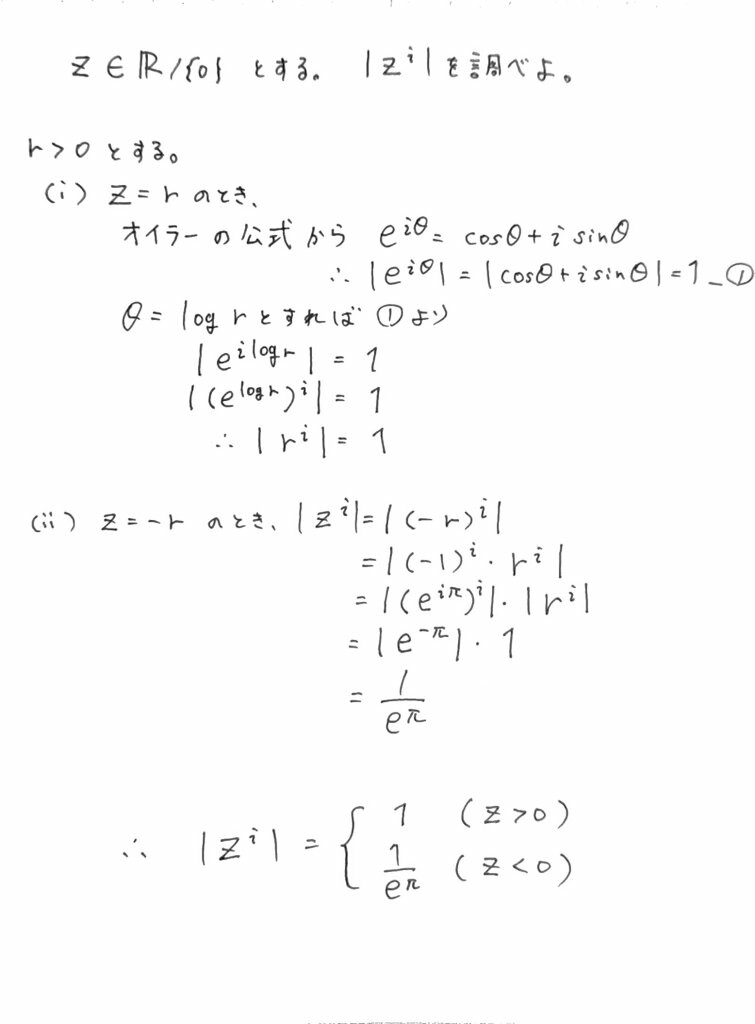 z ∈ ℝ/{0} とする。 |z^i|を調べよ。
r>0 とする。
(i) z=r のとき、
オイラーの公式から e^{iθ}= cosθ+i sinθ
∴ |e^{iθ}| = |cosθ+i sinθ|=1 _①
θ= log r とすれば ①より
|e^{i log r}| = 1
|(e^{log r})^i| = 1
∴ |r^i| = 1
(ii) z=-r のとき、|z^i|=|(-r)^i|
=|(-1)^i · r^i|
=|(e^{iπ})^i|·|r^i|
=|e^{-π}|· 1
= 1/e^π
∴ |z^i| = { 1 (z>0)
1/e^π (z<0)